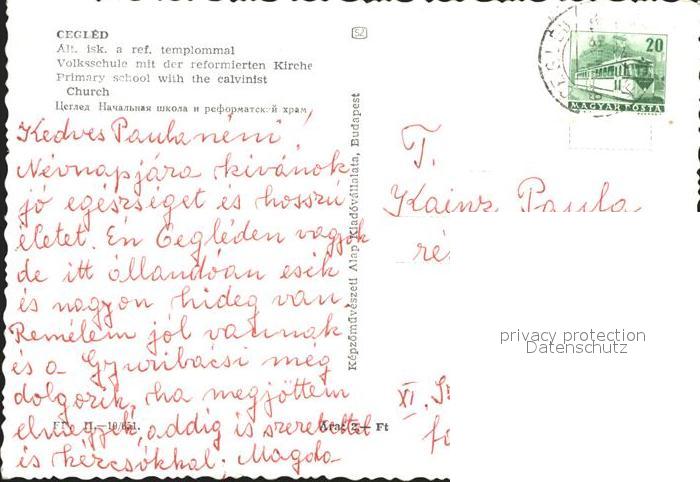 CEGLÉD
Ált. isk. a ref. templommal
Volksschule mit der reformierten Kirche
Primary school with the calvinist
Church
Цеглед Начальная школа и реформатский храм
SZ
20
MAGYAR POSTA
Képzőművészeti Alap Kiadóvállalata, Budapest
Kedves Paula néni
Névnapjára kivánok
jó egészséget és hosszú
életet. Én Cegléden vagyok
de itt állandóan esik
és nagyon hideg van.
Remélem jól vannak
és a Gyuribácsi még
dolgozik, ha megjöttem
elmegyek, addig is szeretettel
és kézcsókkal: Magda
T.
Kainz Paula
ré
XI.
privacy protection
Datenschutz
Ára: 2.— Ft